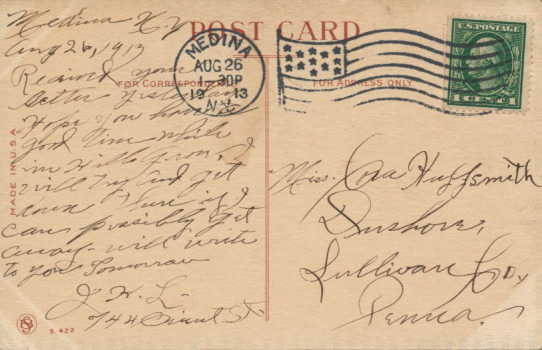 POST CARD
FOR CORRESPONDENCE
FOR ADDRESS ONLY
MADE IN U.S.A.
Medina N.Y.
Aug 26, 1913
Received your
letter yesterday
Hope you have a
good time while
in Hills Grove, I
will try and get
down there if I
can possibly get
away - will write
to you Tomorrow
J. H. L-
744 St.
MEDINA
AUG 26
1-30P
19 13
N.Y.
U.S. POSTAGE
1 CENTS 1
Miss. Huffsmith
Dushore,
Sullivan Co,
Penna.
S. 422